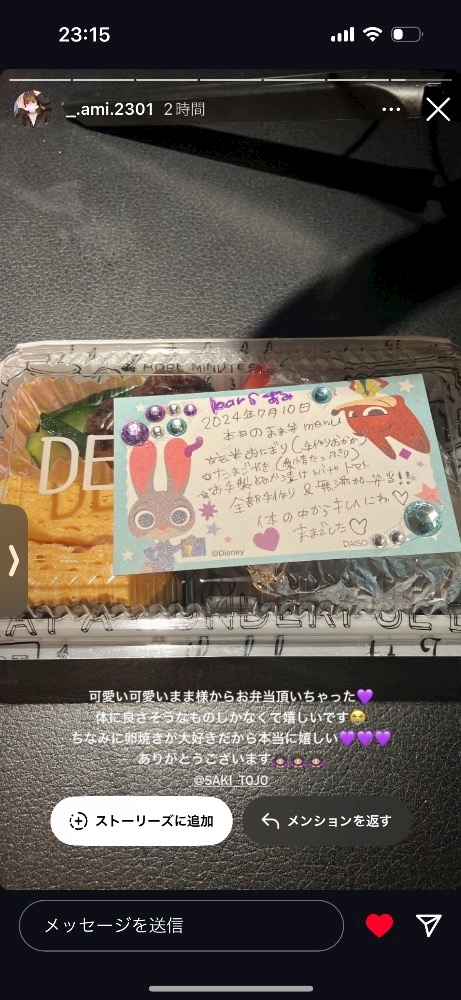 23:15
_.ami.2301 2時間
MODE MINUTES
DE
Dear あみ
2024年7月10日
本日のまま弁menu
☆玄米おにぎり(手作りおかか)
☆たまご焼き(愛情たっぷり)
☆お手製ぬか漬け with トマト
全部手作り&無添加弁当!!
体の中からキレイにね♡
ままでした♡
©Disney
DAISO
可愛い可愛いまま様からお弁当頂いちゃった💜
体に良さそうなものしかなくて嬉しいです😭
ちなみに卵焼きが大好きだから本当に嬉しい💜💜💜
ありがとうございます
@SAKI_TOJO
ストーリーズに追加
メンションを返す
メッセージを送信